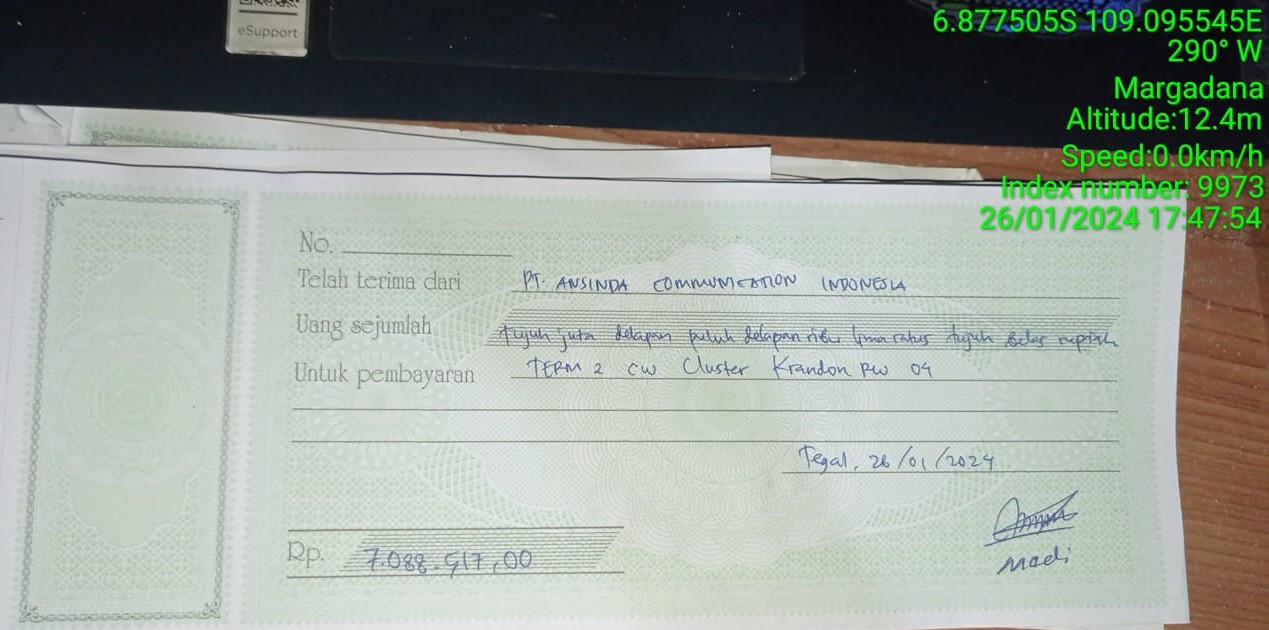 eSupport
6.877505S 109.095545E
290° W
Margadana
Altitude:12.4m
Speed:0.0km/h
Index number: 9973
26/01/2024 17:47:54
No.
Telah terima dari PT. ANSINDA COMMUNICATION INDONESIA
Uang sejumlah tujuh juta delapan puluh delapan ribu lima ratus tujuh belas rupiah
Untuk pembayaran TERM 2 CW Cluster Krandon RW 04
Tegal, 26/01/2024
Rp. 7.088.517,00
Madi